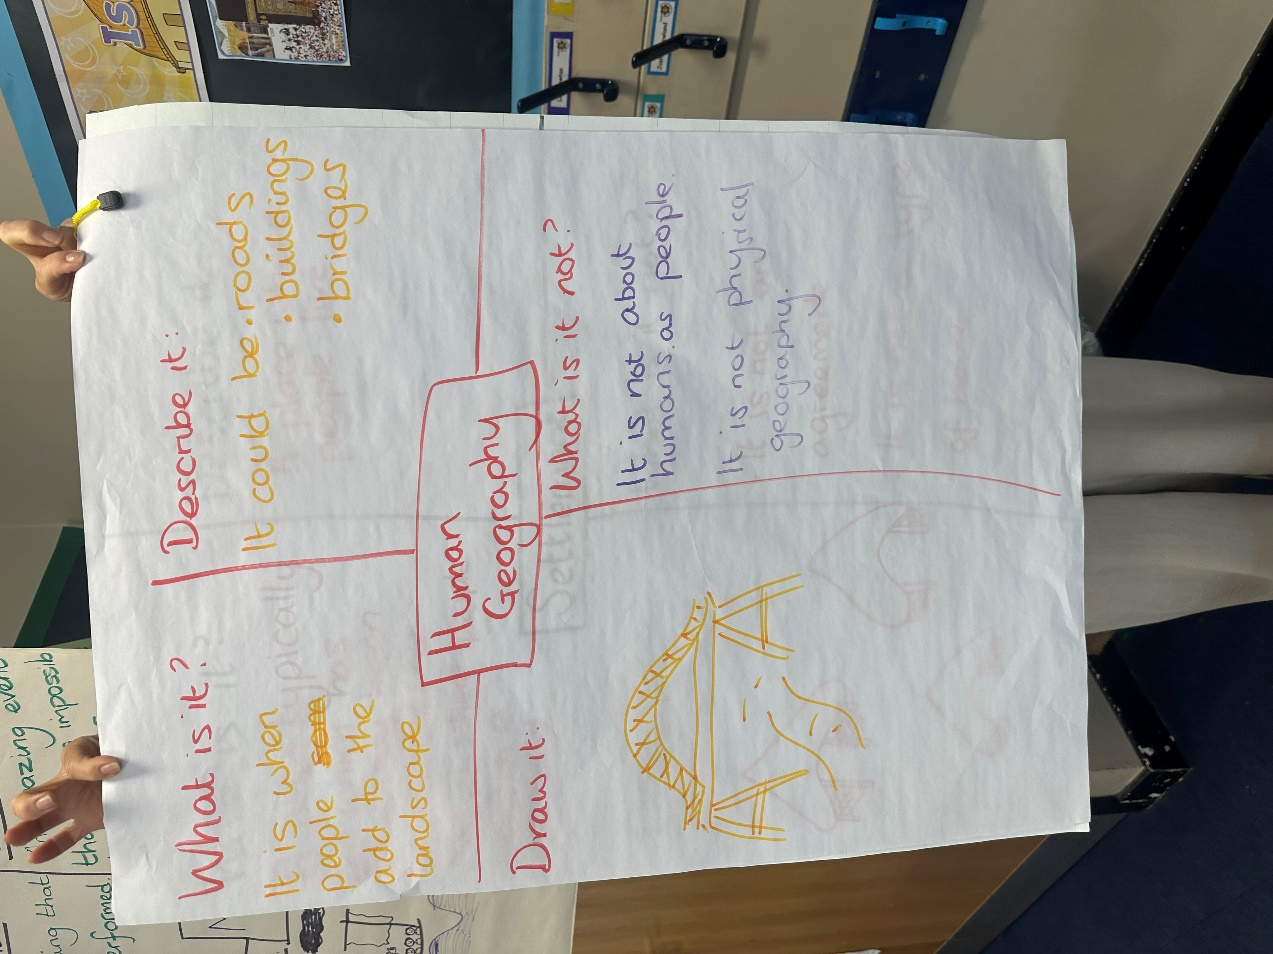 What is it?
It is when
people
add to the
landscape
Describe it:
It could be • roads
• buildings
• bridges
Human
Geography
Draw it:
What is it not?
It is not about
humans as people.
It is not physical
geography.
Is
azing event
impossib
ing that
erformed